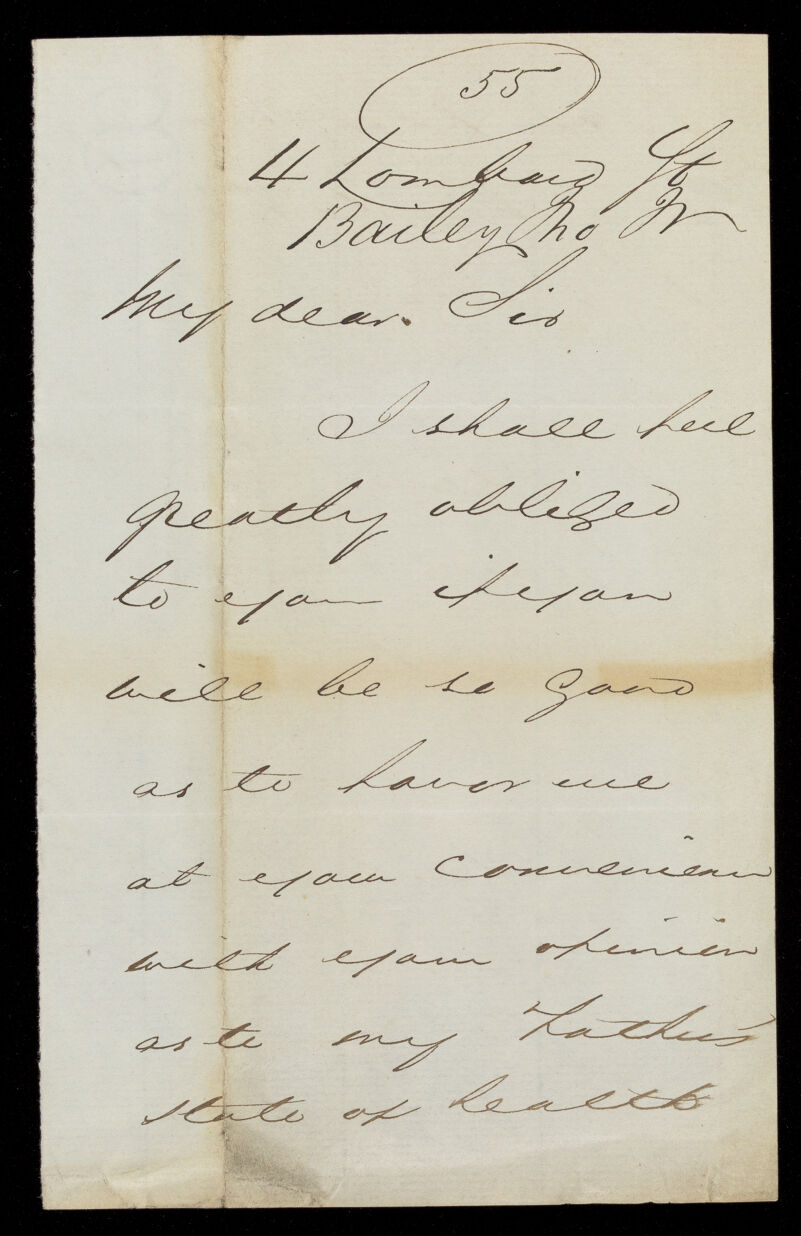 55
4 Lombard St
Bailey
My dear Sir
I shall feel
greatly obliged
to you if you
will be so good
as to favor me
at your convenience
with your opinion
as to my Father's
state of health